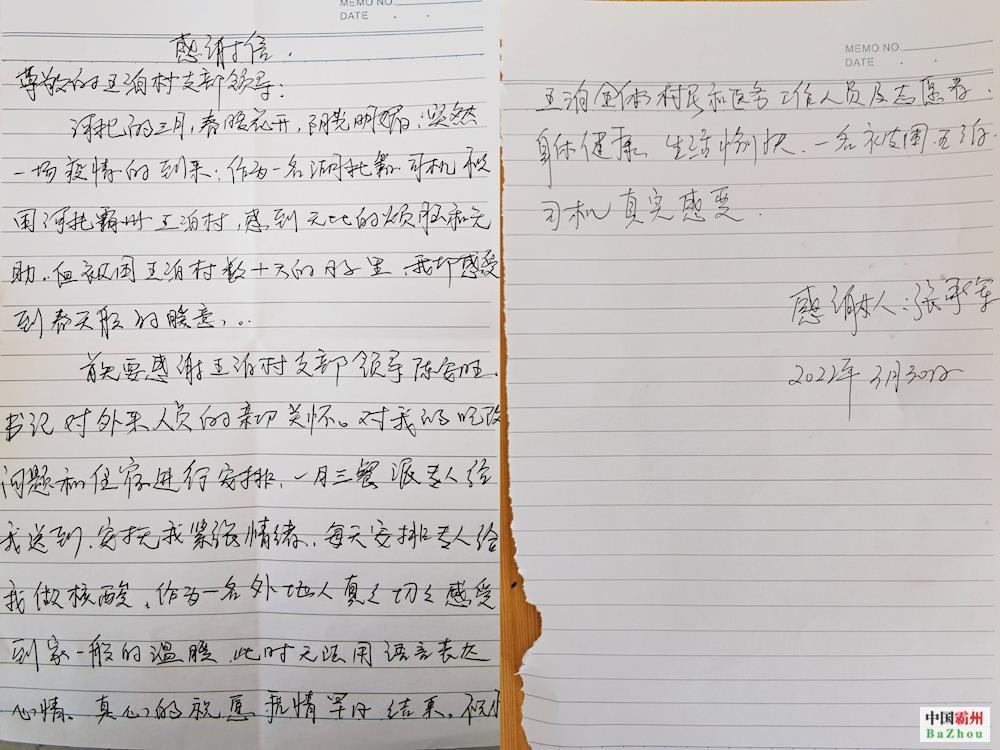 MEMO NO.
DATE . .
感谢信.
尊敬的王泊村支部领导:
河北的三月,春暖花开,阳光明媚,突然
一场疫情的到来,作为一名河北籍司机被
困河北霸州王泊村,感到无比的烦躁和无
助.但被困王泊村数十天的日子里,我却感受
到春天般的暖意...
首先要感谢王泊村支部领导陈 旺.
书记对外来人员的亲切关怀。对我的吃饭
问题和住宿进行安排,一日三餐派专人给
我送到.安抚我紧张情绪.每天安排专人给
我做核酸.作为一名外地人真真切切感受
到家一般的温暖.此时无法用语言表达
心情。真心的祝愿疫情早日结束.祝
MEMO NO.
DATE . .
王泊全体村民和医务工作人员及志愿者.
身体健康、生活愉快.一名被困王泊
司机真实感受.
感谢人:张 军
2022年3月30日
中国霸州
BaZhou